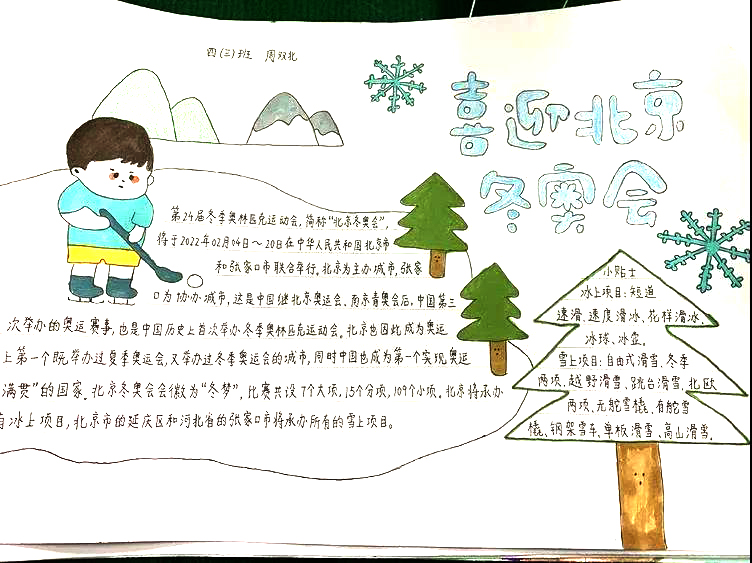 四(三)班 周双北
喜迎北京
冬奥会
第24届冬季奥林匹克运动会，简称“北京冬奥会”，
将于2022年02月04日～20日在中华人民共和国北京市
和张家口市联合举行，北京为主办城市，张家
口为协办城市，这是中国继北京奥运会、南京青奥会后，中国第三
次举办的奥运赛事，也是中国历史上首次举办冬季奥林匹克运动会。北京也因此成为奥运
上第一个既举办过夏季奥运会，又举办过冬季奥运会的城市，同时中国也成为第一个实现奥运
满贯”的国家。北京冬奥会会徽为“冬梦”，比赛共设7个大项，15个分项，109个小项。北京将承办
有冰上项目，北京市的延庆区和河北省的张家口市将承办所有的雪上项目。
小贴士
冰上项目：短道
速滑、速度滑冰、花样滑冰、
冰球、冰壶。
雪上项目：自由式滑雪、冬季
两项、越野滑雪、跳台滑雪、北欧
两项、无舵雪橇、有舵雪
橇、钢架雪车、单板滑雪、高山滑雪。